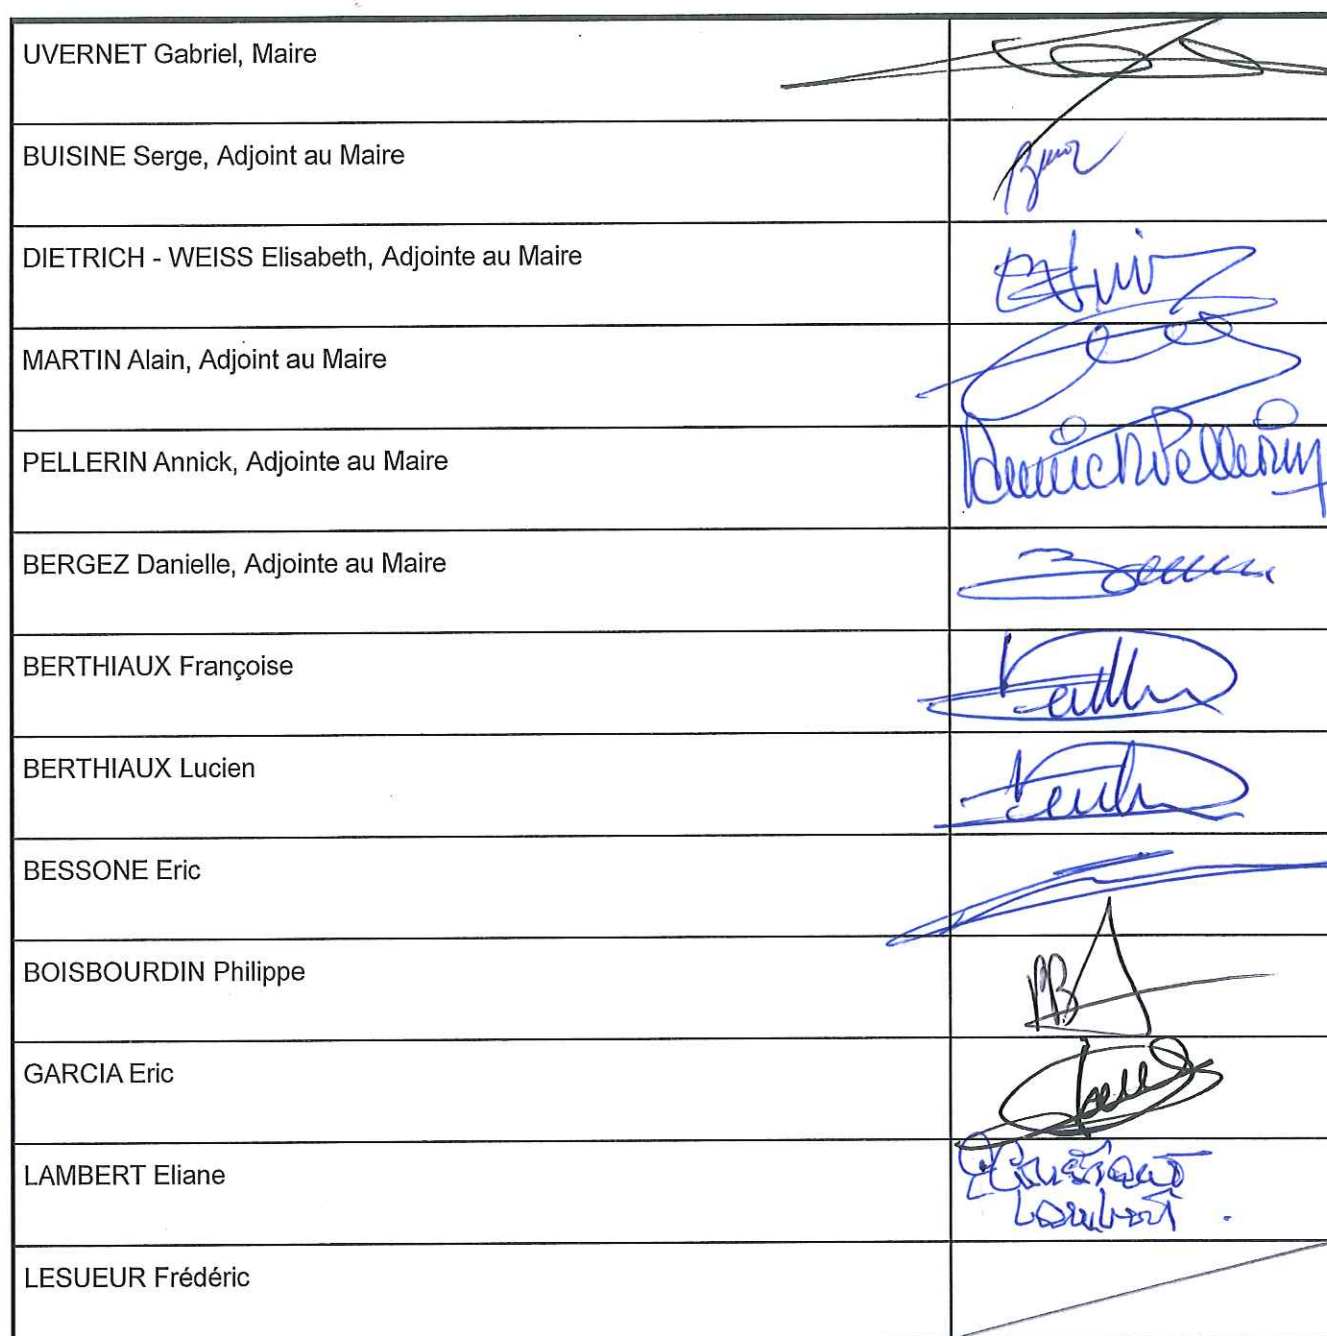 UVERNET Gabriel, Maire
BUISINE Serge, Adjoint au Maire
DIETRICH - WEISS Elisabeth, Adjointe au Maire
MARTIN Alain, Adjoint au Maire
PELLERIN Annick, Adjointe au Maire
Annick Pellerin
BERGEZ Danielle, Adjointe au Maire
BERTHIAUX Françoise
BERTHIAUX Lucien
BESSONE Eric
BOISBOURDIN Philippe
PB
GARCIA Eric
LAMBERT Eliane
Lambert
LESUEUR Frédéric